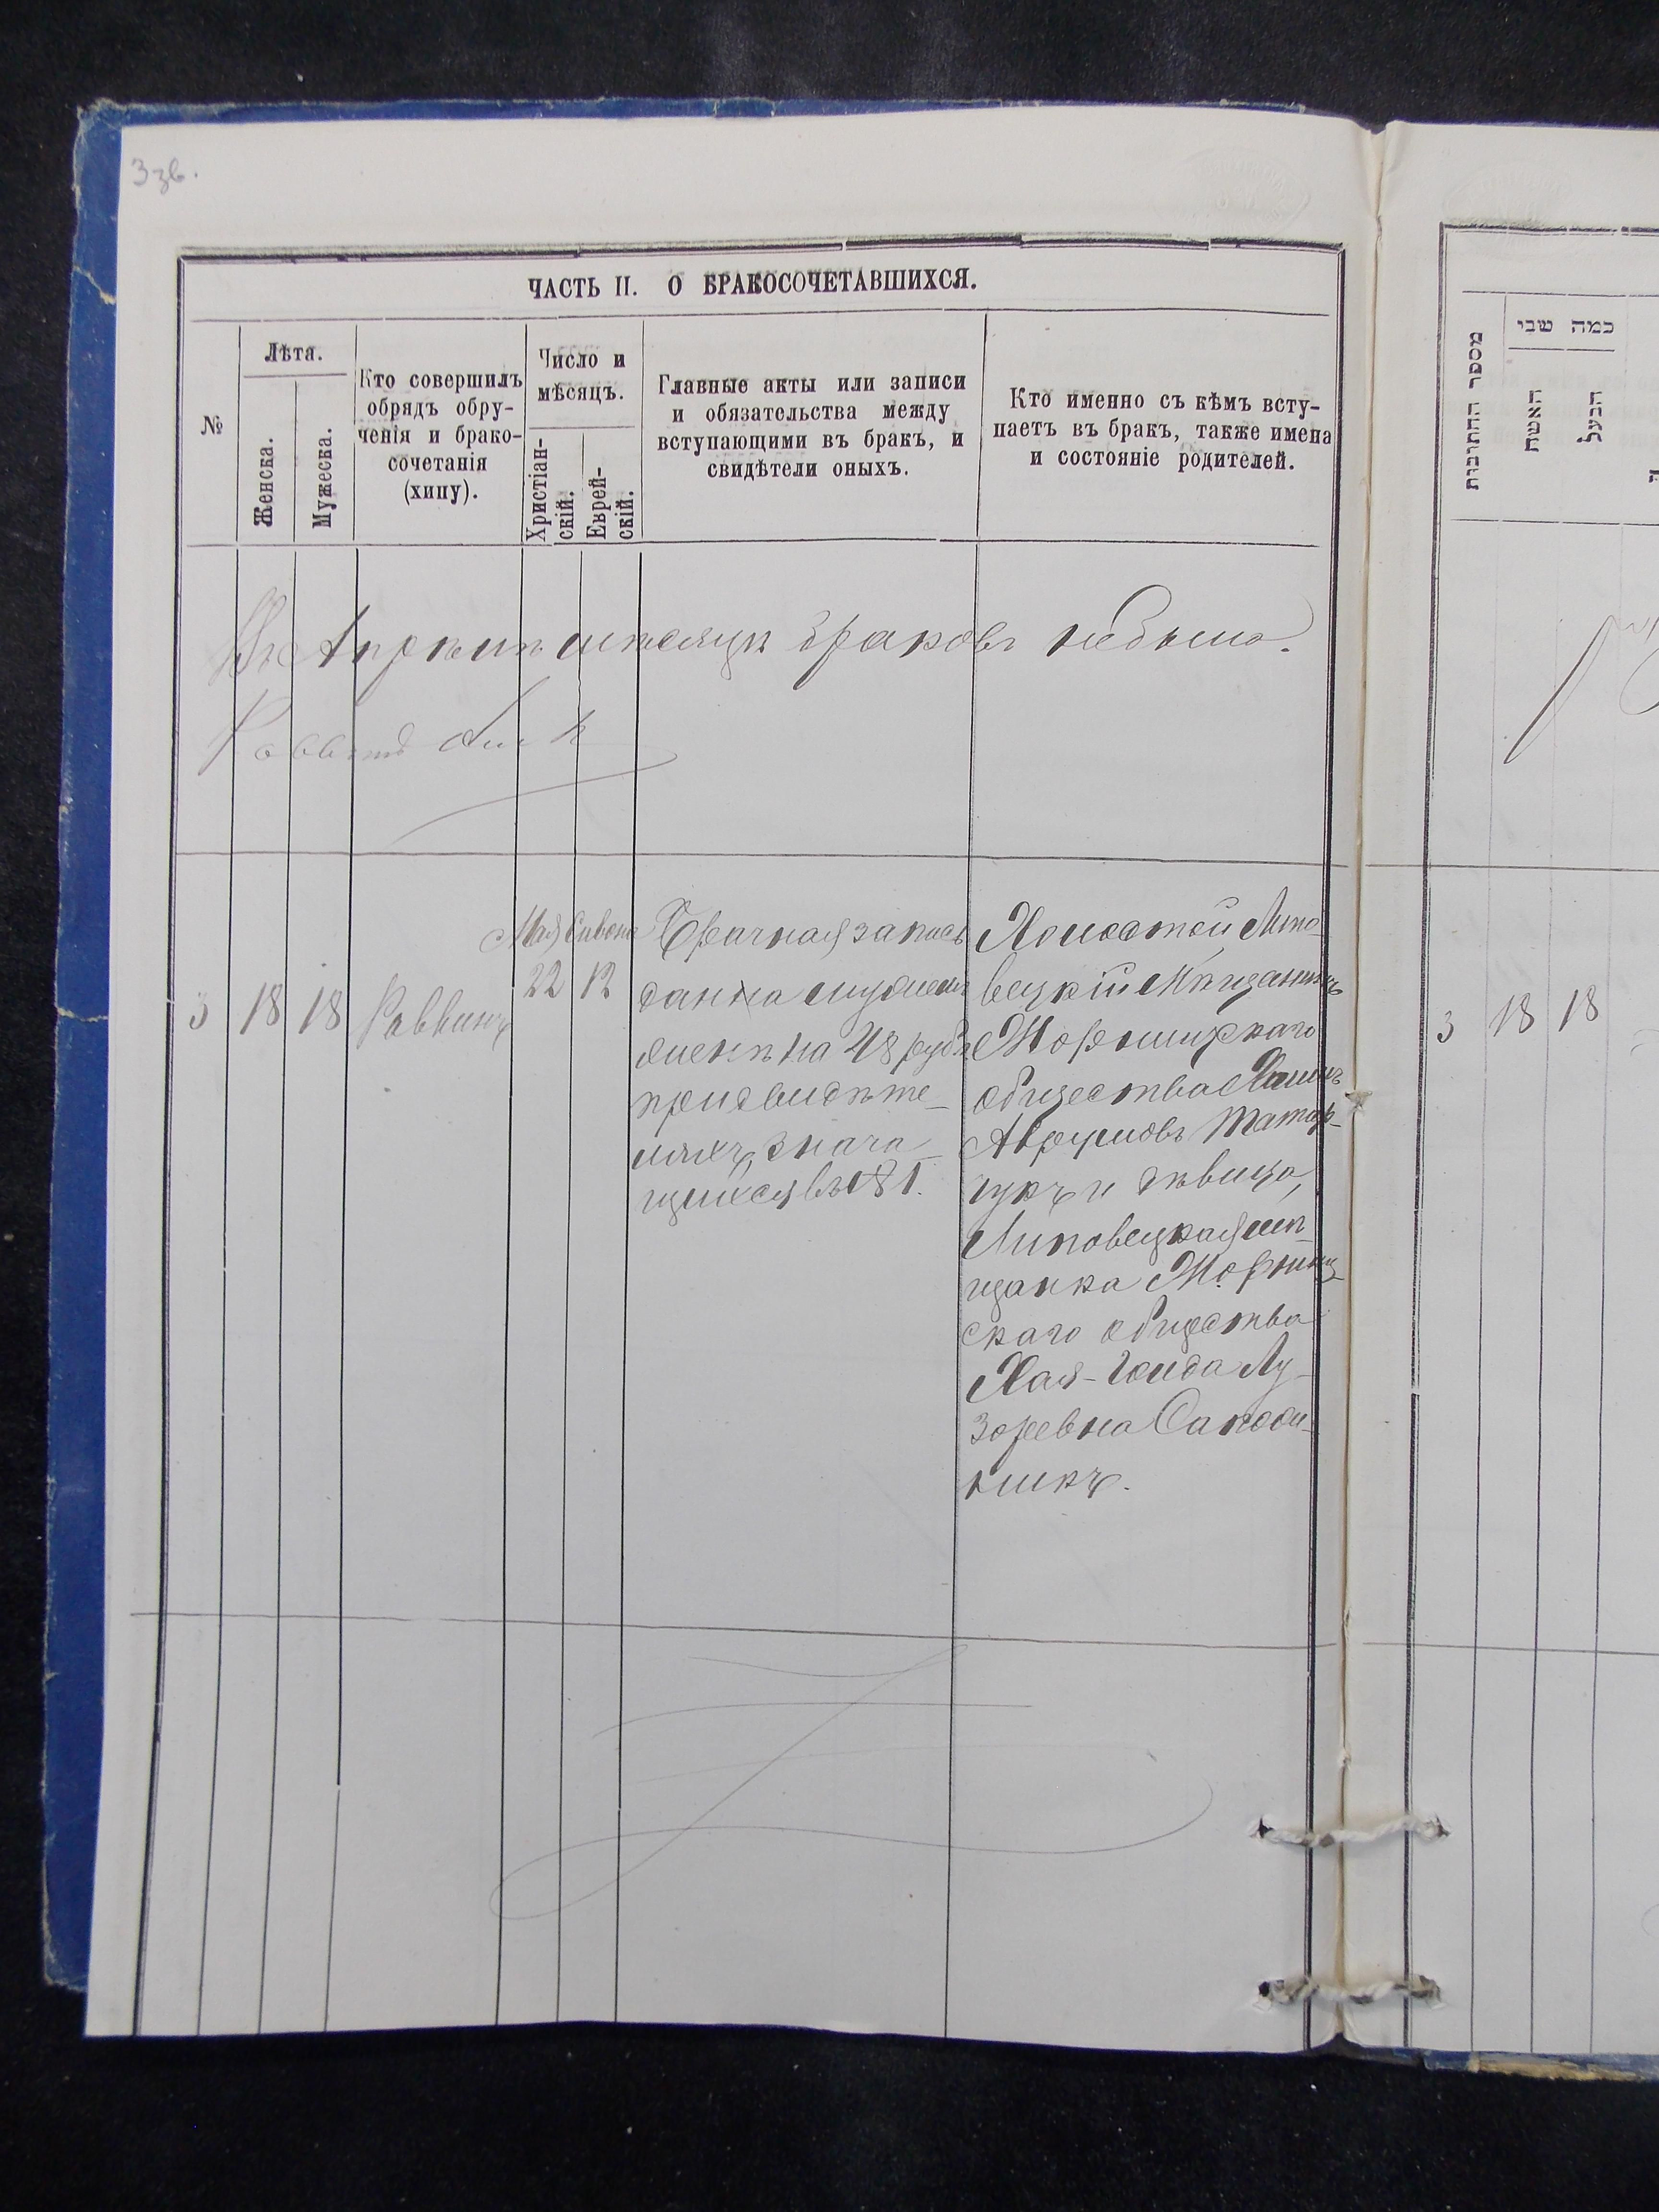 3зв.
ЧАСТЬ II. О БРАКОСОЧЕТАВШИХСЯ.
№
Лѣта.
Женска.
Мужеска.
Кто совершилъ
обрядъ обру-
ченія и брако-
сочетанія
(хипу).
Число и
мѣсяцъ.
Христіан-
скій.
Еврей-
скій.
Главные акты или записи
и обязательства между
вступающими въ бракъ, и
свидѣтели оныхъ.
Кто именно съ кѣмъ всту-
паетъ въ бракъ, также имена
и состояніе родителей.
Въ Апрѣлѣ мѣсяцѣ браковъ небыло.
Раввинъ
3
18
18
Раввинъ
Мая
22
Сивона
12
Брачная запись
данна мужемъ
женѣ на 48 рубл
при свидѣте-
ляхъ, знача-
щихся въ № 1.
Холостой Липо-
вецкій Мѣщанинъ
Жорнищскаго
общества
Аврумовъ Татар-
чукъ и дѣвица,
Липовецкая мѣ-
щанка Жорнищ-
скаго общества
Хая-Гольда Лу-
зоревна Сапож-
никъ.
מספר החתונות
כמה שני
האשה
הבעל
3
18
18